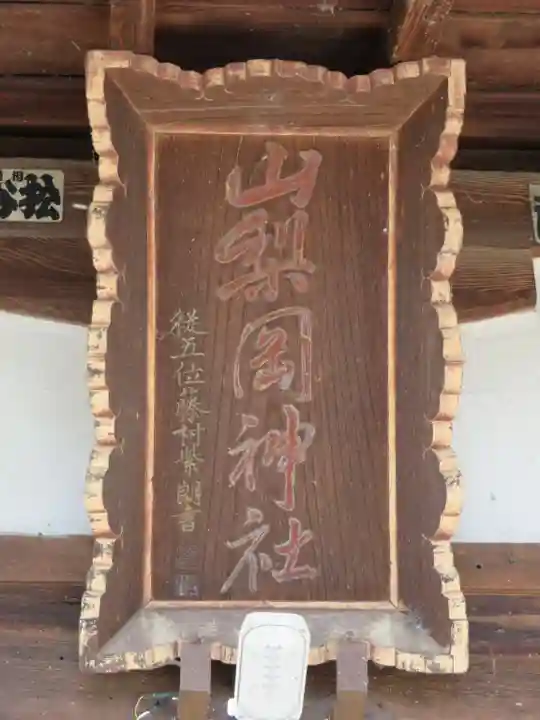 山梨岡神社
従五位藤村紫朗書